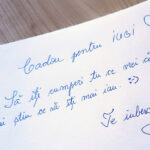 Cadou pentru iubi
Să îți cumperi tu ce vrei că
știu ce să îți mai iau. :))
Te iubesc